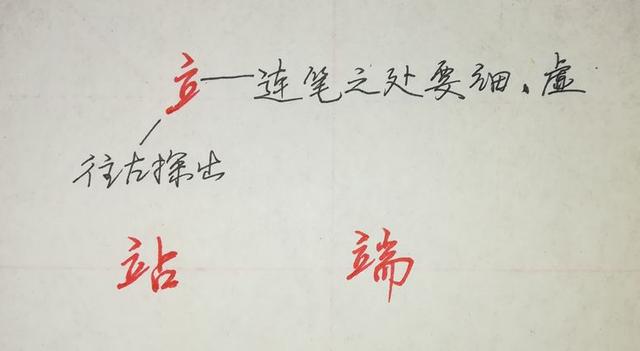 立——连笔之处要细、虚
往左探出
站 端